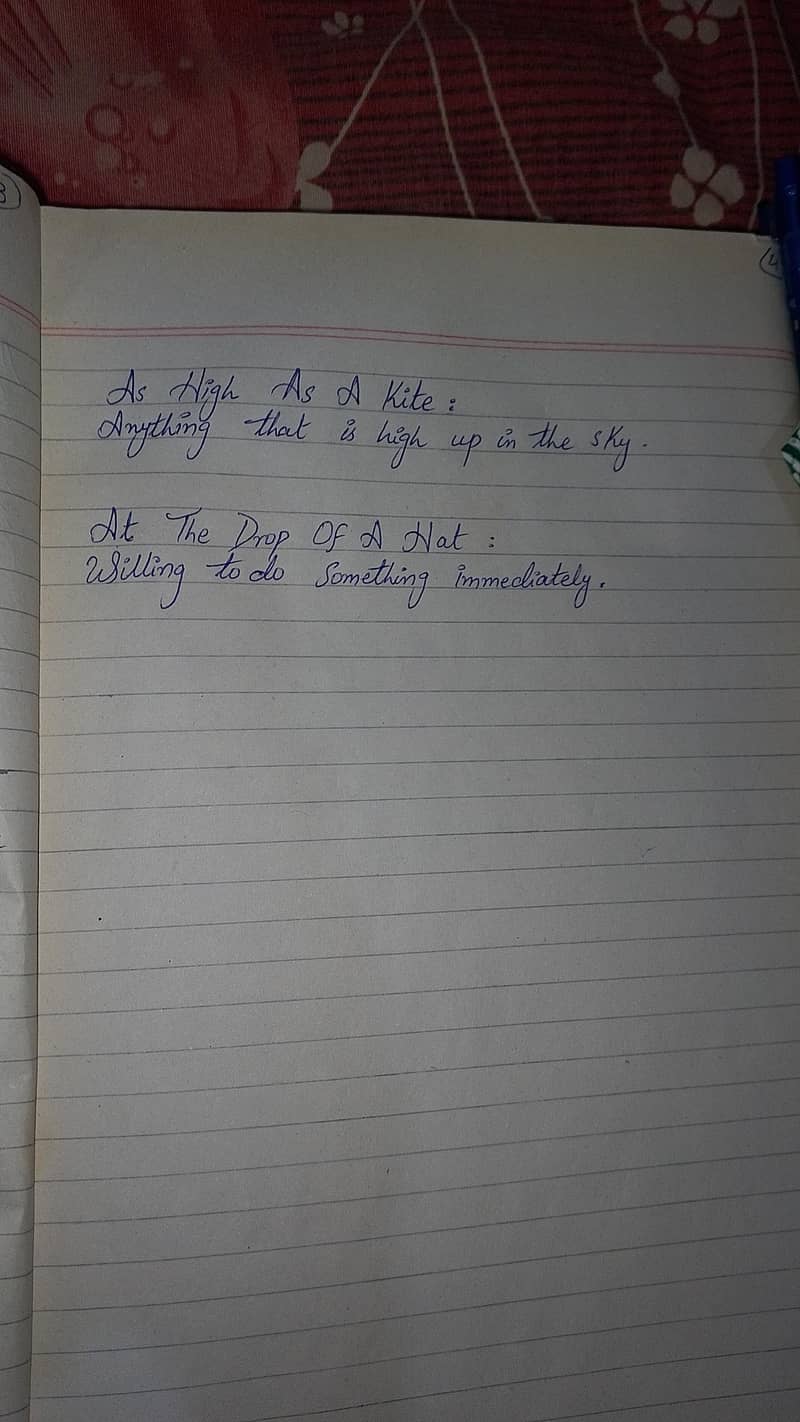 As High As A Kite :
Anything that is high up in the sky.
At The Drop Of A Hat :
Willing to do Something immediately.